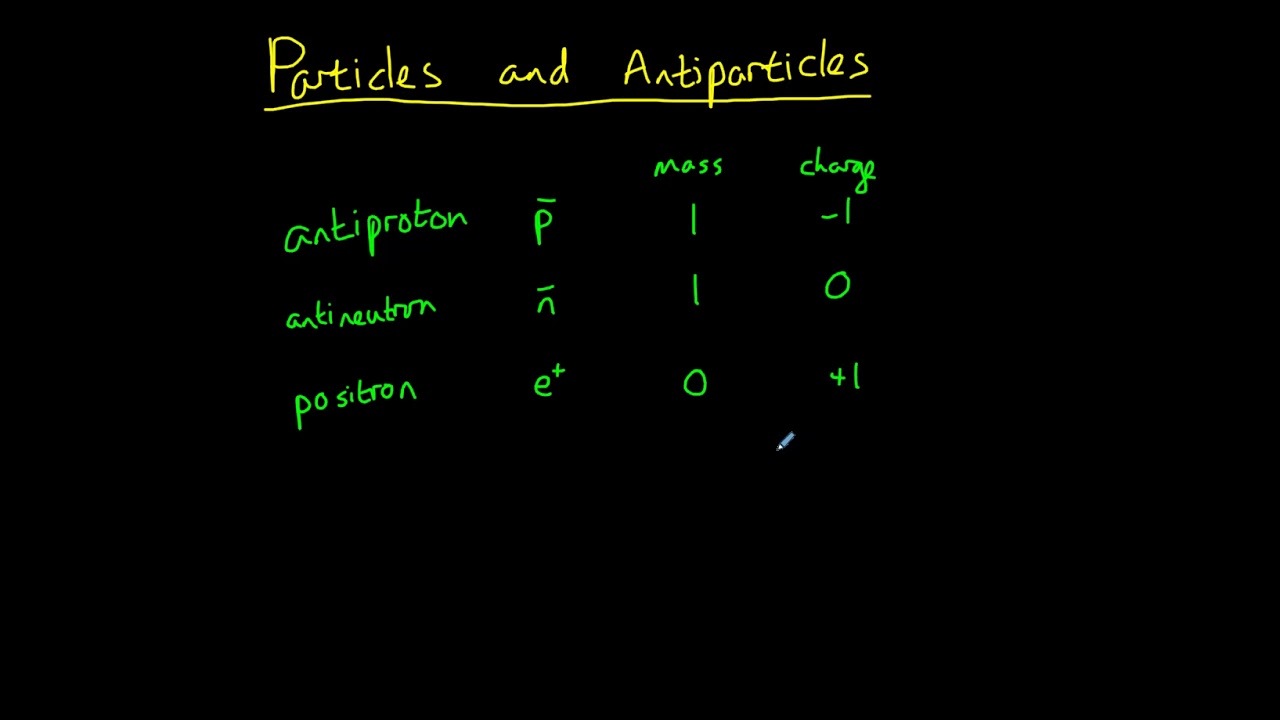 Particles and Antiparticles
mass charge
antiproton p̄ 1 -1
antineutron n̄ 1 0
positron e⁺ 0 +1